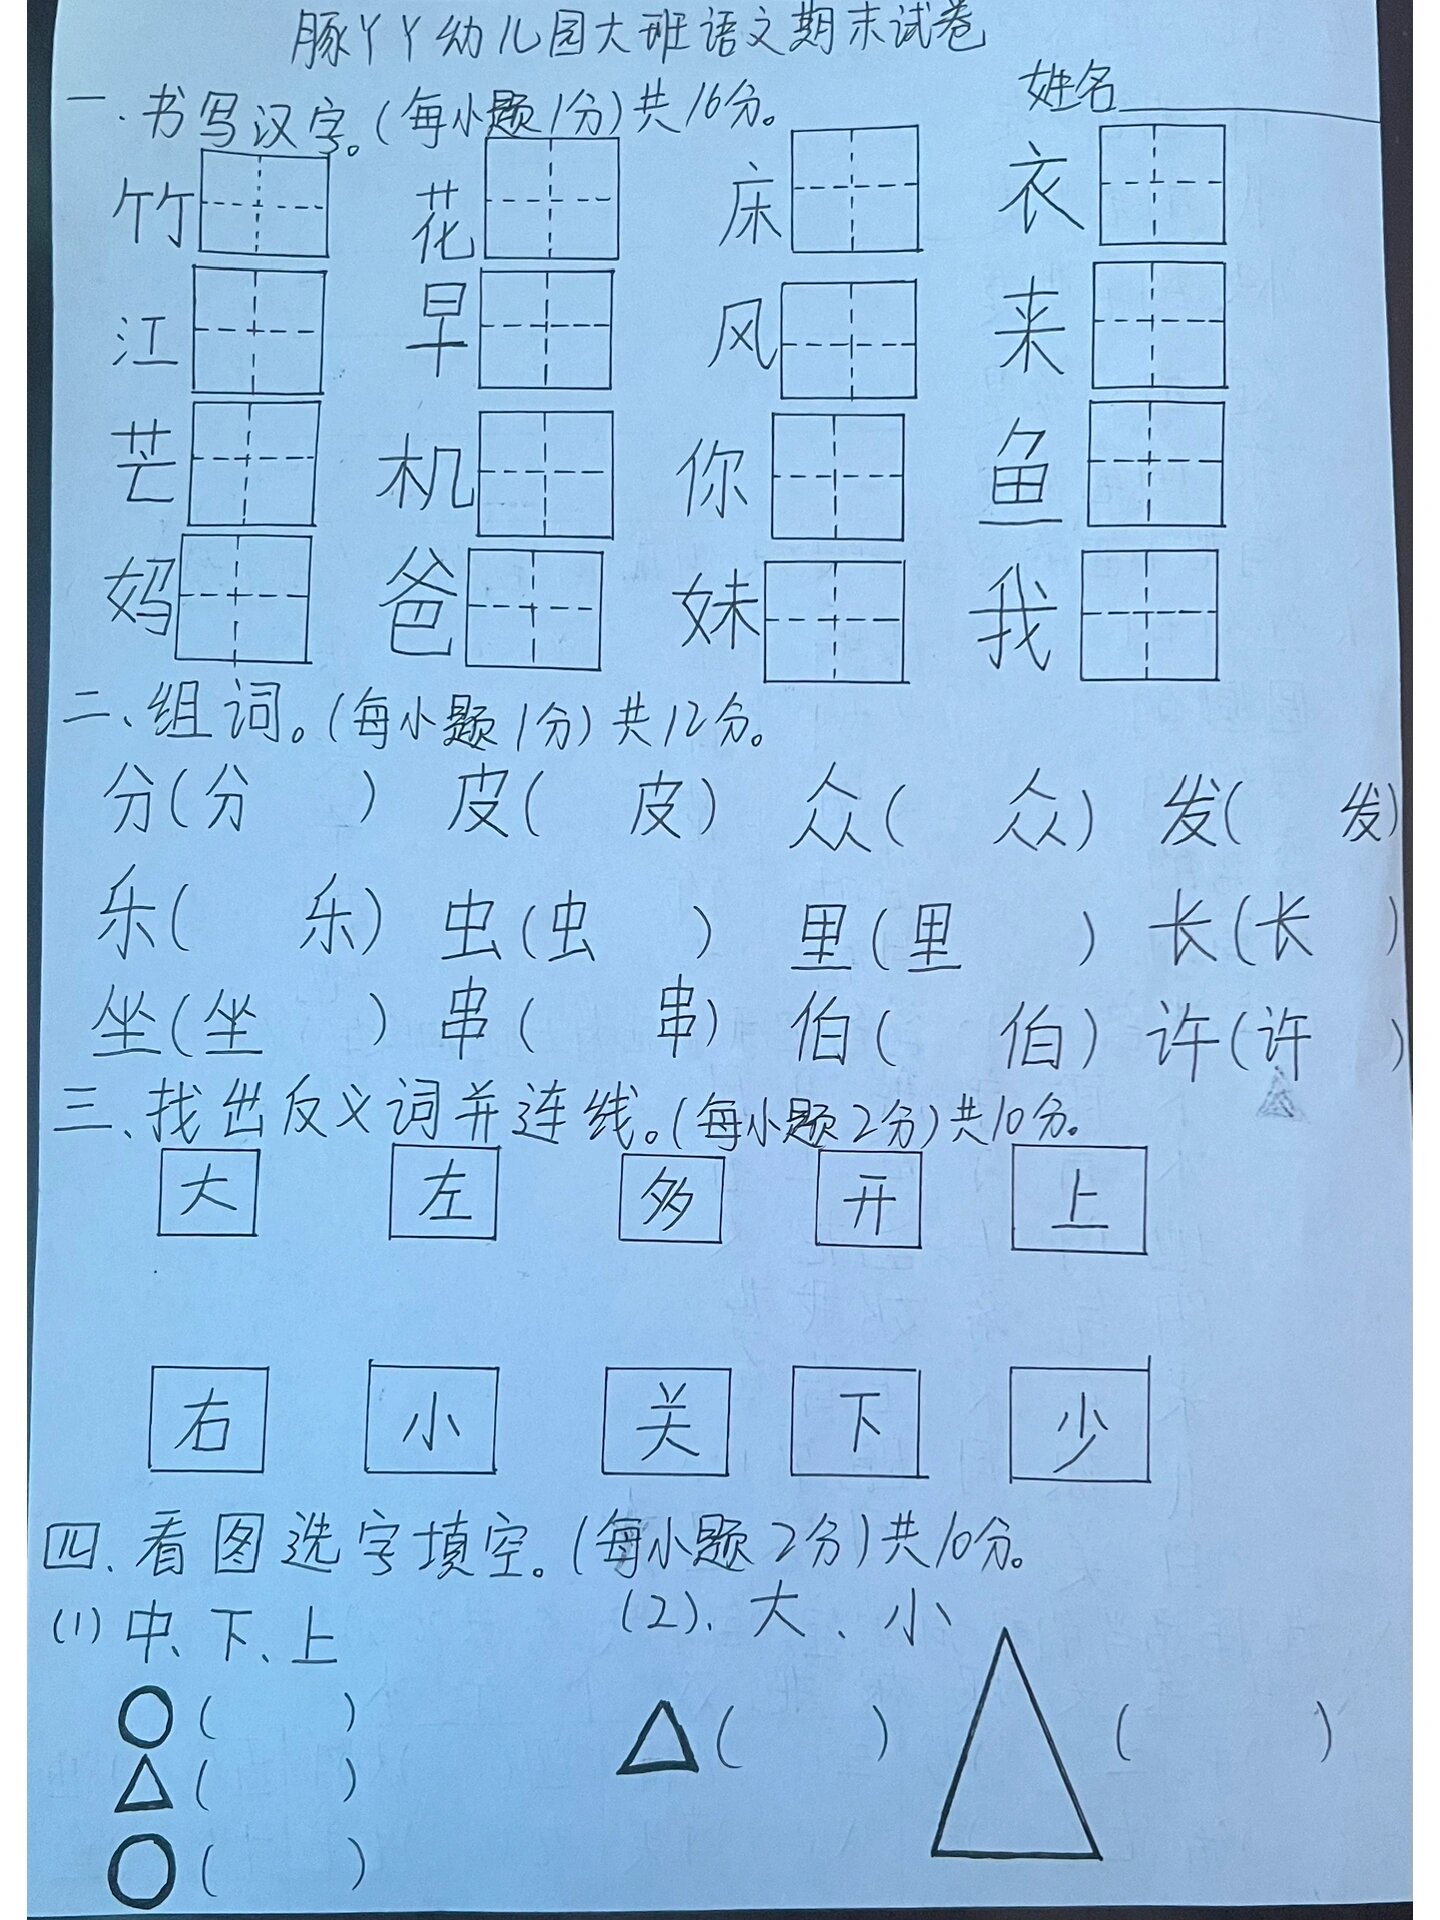 豚丫丫幼儿园大班语文期末试卷
姓名
一.书写汉字。(每小题1分)共16分。
竹 花 床 衣
江 早 风 来
芒 机 你 鱼
妈 爸 妹 我
二、组词。(每小题1分)共12分。
分(分 ) 皮( 皮) 众( 众) 发( 发)
乐( 乐) 虫(虫 ) 里(里 ) 长(长 )
坐(坐 ) 串( 串) 伯( 伯) 许(许 )
三、找出反义词并连线。(每小题2分)共10分。
大 左 多 开 上
右 小 关 下 少
四、看图选字填空。(每小题2分)共10分。
(1)中、下、上 (2)、大、小
( )
( ) ( ) ( )
( )